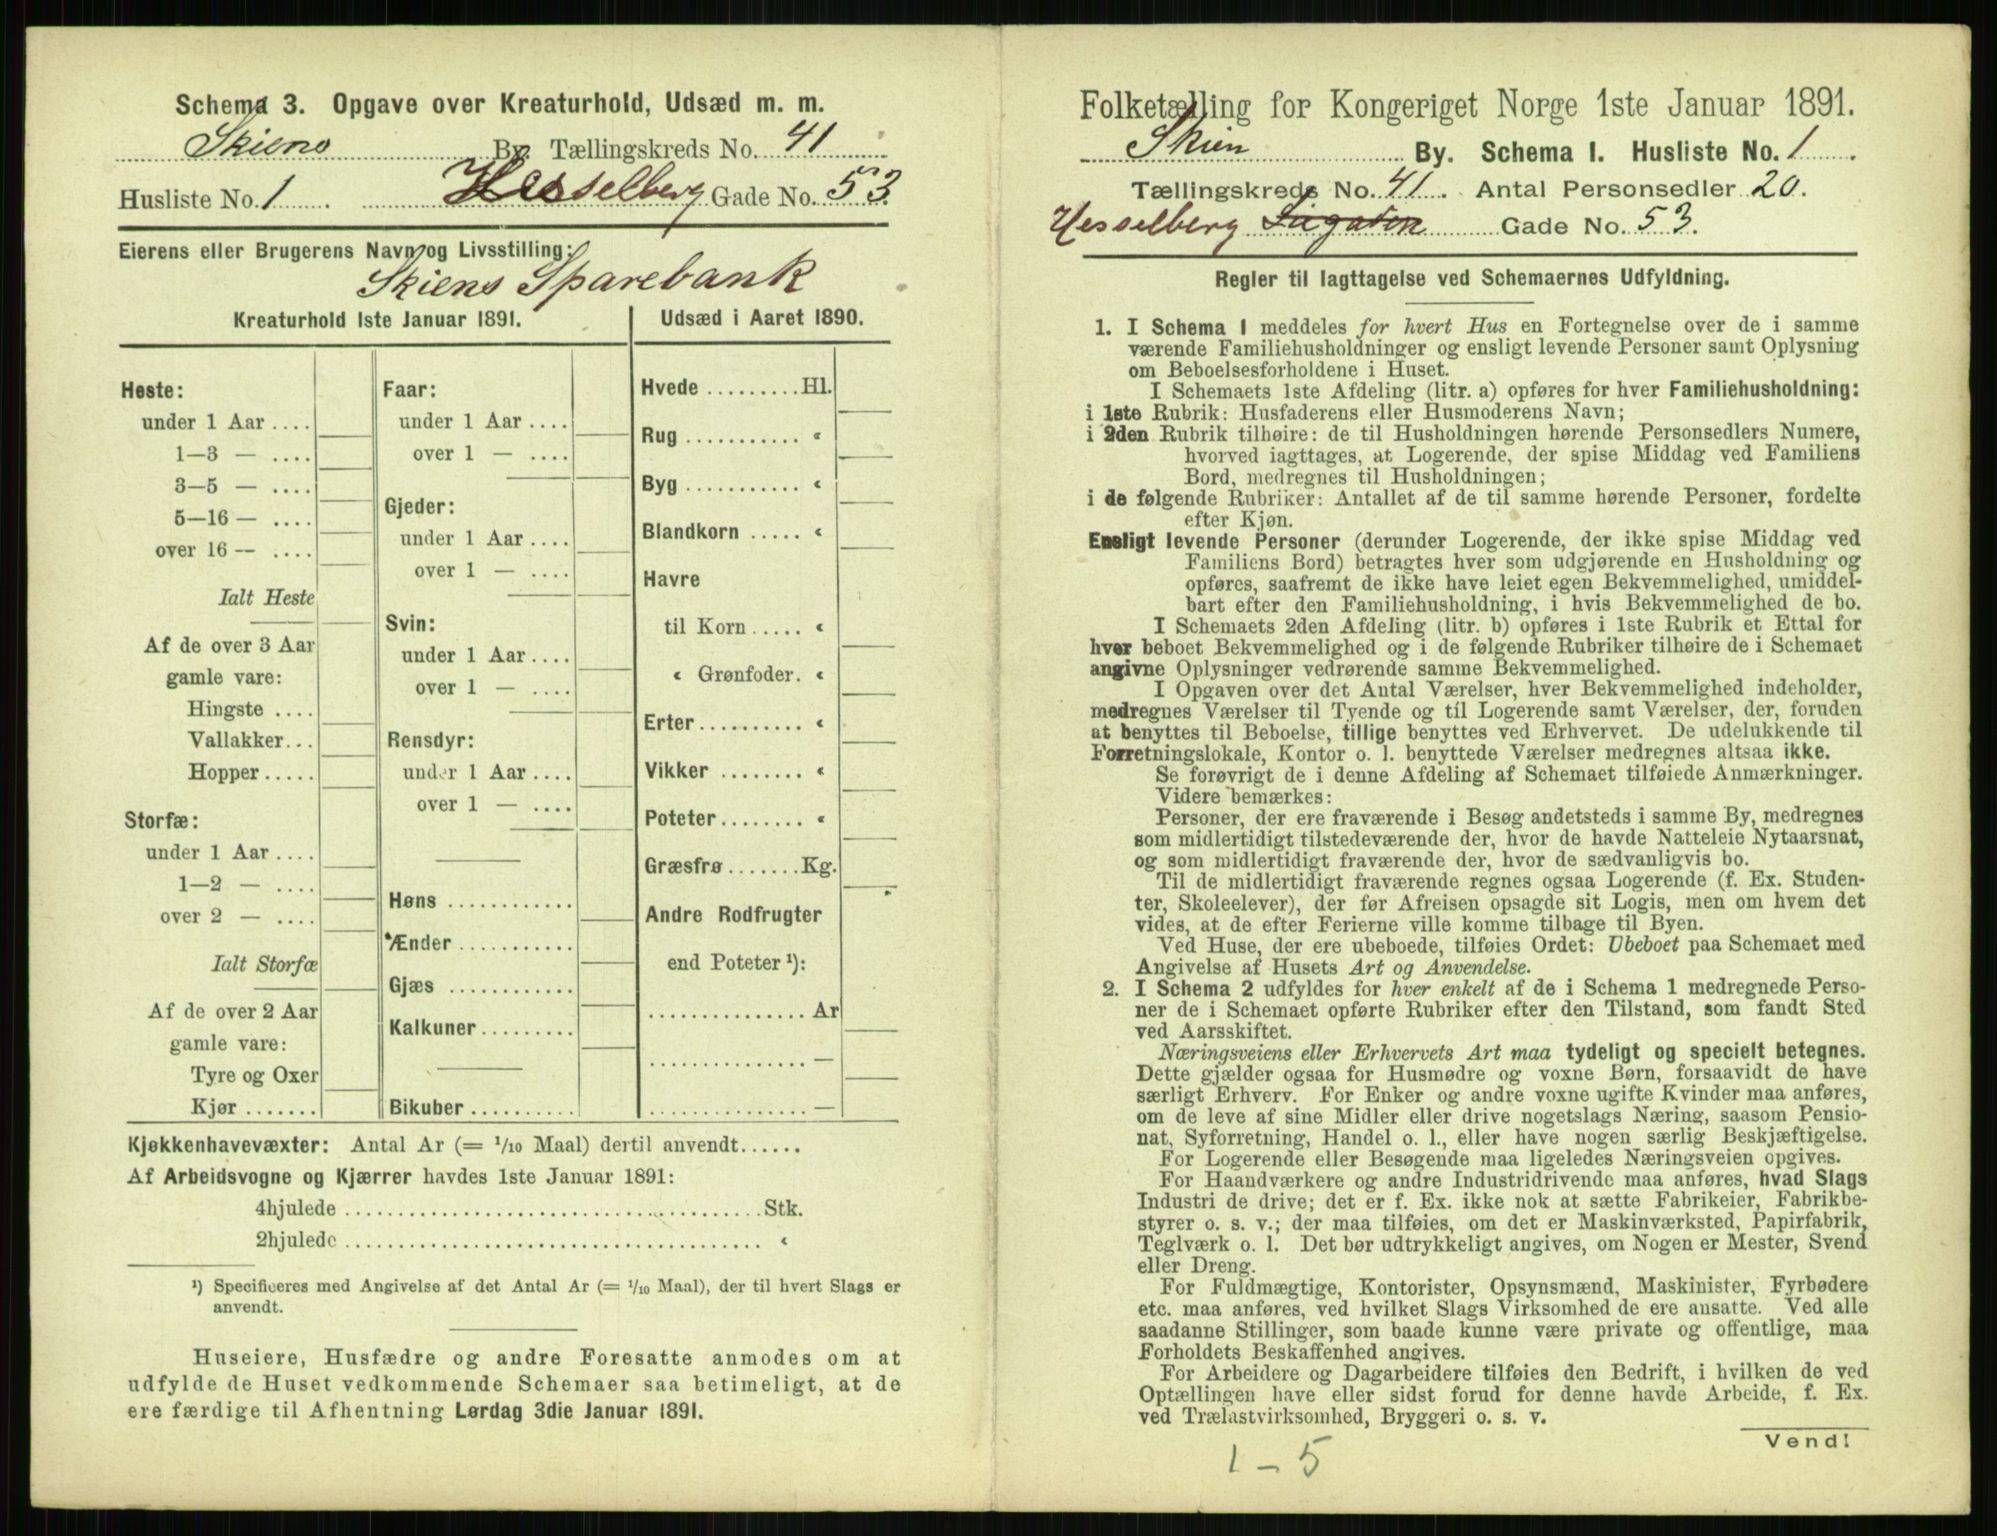 Schema 3. Opgave over Kreaturhold, Udsæd m. m.
Skiens By. Tællingskreds No. 41
Husliste No. 1 Hesselberg Gade No. 53.
Eierens eller Brugerens Navn og Livsstilling:
Skiens Sparebank
Kreaturhold 1ste Januar 1891.
Heste:
under 1 Aar ....
1—3 — ....
3—5 — ....
5—16 — ....
over 16 — ....
Ialt Heste
Af de over 3 Aar
gamle vare:
Hingste ....
Vallakker...
Hopper.....
Storfæ:
under 1 Aar ....
1—2 — ....
over 2 — ....
Ialt Storfæ
Af de over 2 Aar
gamle vare:
Tyre og Oxer
Kjør .......
Faar:
under 1 Aar ....
over 1 — ....
Gjeder:
under 1 Aar ....
over 1 — ....
Svin:
under 1 Aar ....
over 1 — ....
Rensdyr:
under 1 Aar ....
over 1 — ....
Høns ............
Ænder ...........
Gjæs ............
Kalkuner.........
Bikuber ..........
Udsæd i Aaret 1890.
Hvede .........Hl.
Rug ........... «
Byg ........... «
Blandkorn ..... «
Havre
til Korn ..... «
« Grønfoder. «
Erter.......... «
Vikker ........ «
Poteter........ «
Græsfrø .......Kg.
Andre Rodfrugter
end Poteter ¹):
............... Ar
............... —
............... —
Kjøkkenhavevæxter: Antal Ar (= 1/10 Maal) dertil anvendt......
Af Arbeidsvogne og Kjærrer havdes 1ste Januar 1891:
4hjulede ........................................Stk.
2hjulede ........................................ «
¹) Specificeres med Angivelse af det Antal Ar (= 1/10 Maal), der til hvert Slags er
anvendt.
Huseiere, Husfædre og andre Foresatte anmodes om at
udfylde de Huset vedkommende Schemaer saa betimeligt, at de
ere færdige til Afhentning Lørdag 3die Januar 1891.
Folketælling for Kongeriget Norge 1ste Januar 1891.
Skien By. Schema 1. Husliste No. 1.
Tællingskreds No. 41. Antal Personsedler 20.
Hesselberg Gade No. 53.
Regler til Iagttagelse ved Schemaernes Udfyldning.
1. I Schema 1 meddeles for hvert Hus en Fortegnelse over de i samme
værende Familiehusholdninger og ensligt levende Personer samt Oplysning
om Beboelsesforholdene i Huset.
I Schemaets 1ste Afdeling (litr. a) opføres for hver Familiehusholdning:
i 1ste Rubrik: Husfaderens eller Husmoderens Navn;
i 2den Rubrik tilhøire: de til Husholdningen hørende Personsedlers Numere,
hvorved iagttages, at Logerende, der spise Middag ved Familiens
Bord, medregnes til Husholdningen;
i de følgende Rubriker: Antallet af de til samme hørende Personer, fordelte
efter Kjøn.
Ensligt levende Personer (derunder Logerende, der ikke spise Middag ved
Familiens Bord) betragtes hver som udgjørende en Husholdning og
opføres, saafremt de ikke have leiet egen Bekvemmelighed, umiddel-
bart efter den Familiehusholdning, i hvis Bekvemmelighed de bo.
I Schemaets 2den Afdeling (litr. b) opføres i 1ste Rubrik et Ettal for
hver beboet Bekvemmelighed og i de følgende Rubriker tilhøire de i Schemaet
angivne Oplysninger vedrørende samme Bekvemmelighed.
I Opgaven over det Antal Værelser, hver Bekvemmelighed indeholder,
medregnes Værelser til Tyende og til Logerende samt Værelser, der, foruden
at benyttes til Beboelse, tillige benyttes ved Erhvervet. De udelukkende til
Forretningslokale, Kontor o. l. benyttede Værelser medregnes altsaa ikke.
Se forøvrigt de i denne Afdeling af Schemaet tilføiede Anmærkninger.
Videre bemærkes:
Personer, der ere fraværende i Besøg andetsteds i samme By, medregnes
som midlertidigt tilstedeværende der, hvor de havde Natteleie Nytaarsnat,
og som midlertidigt fraværende der, hvor de sædvanligvis bo.
Til de midlertidigt fraværende regnes ogsaa Logerende (f. Ex. Studen-
ter, Skoleelever), der før Afreisen opsagde sit Logis, men om hvem det
vides, at de efter Ferierne ville komme tilbage til Byen.
Ved Huse, der ere ubeboede, tilføies Ordet: Ubeboet paa Schemaet med
Angivelse af Husets Art og Anvendelse.
2. I Schema 2 udfyldes for hver enkelt af de i Schema 1 medregnede Perso-
ner de i Schemaet opførte Rubriker efter den Tilstand, som fandt Sted
ved Aarsskiftet.
Næringsveiens eller Erhvervets Art maa tydeligt og specielt betegnes.
Dette gjælder ogsaa for Husmødre og voxne Børn, forsaavidt de have
særligt Erhverv. For Enker og andre voxne ugifte Kvinder maa anføres,
om de leve af sine Midler eller drive nogetslags Næring, saasom Pensio-
nat, Syforretning, Handel o. l., eller have nogen særlig Beskjæftigelse.
For Logerende eller Besøgende maa ligeledes Næringsveien opgives.
For Haandværkere og andre Industridrivende maa anføres, hvad Slags
Industri de drive; det er f. Ex. ikke nok at sætte Fabrikeier, Fabrikbe-
styrer o. s. v.; der maa tilføies, om det er Maskinværksted, Papirfabrik,
Teglværk o. l. Det bør udtrykkeligt angives, om Nogen er Mester, Svend
eller Dreng.
For Fuldmægtige, Kontorister, Opsynsmænd, Maskinister, Fyrbødere
etc. maa anføres, ved hvilket Slags Virksomhed de ere ansatte. Ved alle
saadanne Stillinger, som baade kunne være private og offentlige, maa
Forholdets Beskaffenhed angives.
For Arbeidere og Dagarbeidere tilføies den Bedrift, i hvilken de ved
Optællingen have eller sidst forud for denne havde Arbeide, f. Ex.
ved Trælastvirksomhed, Bryggeri o. s. v.
Vend!
1 - 5